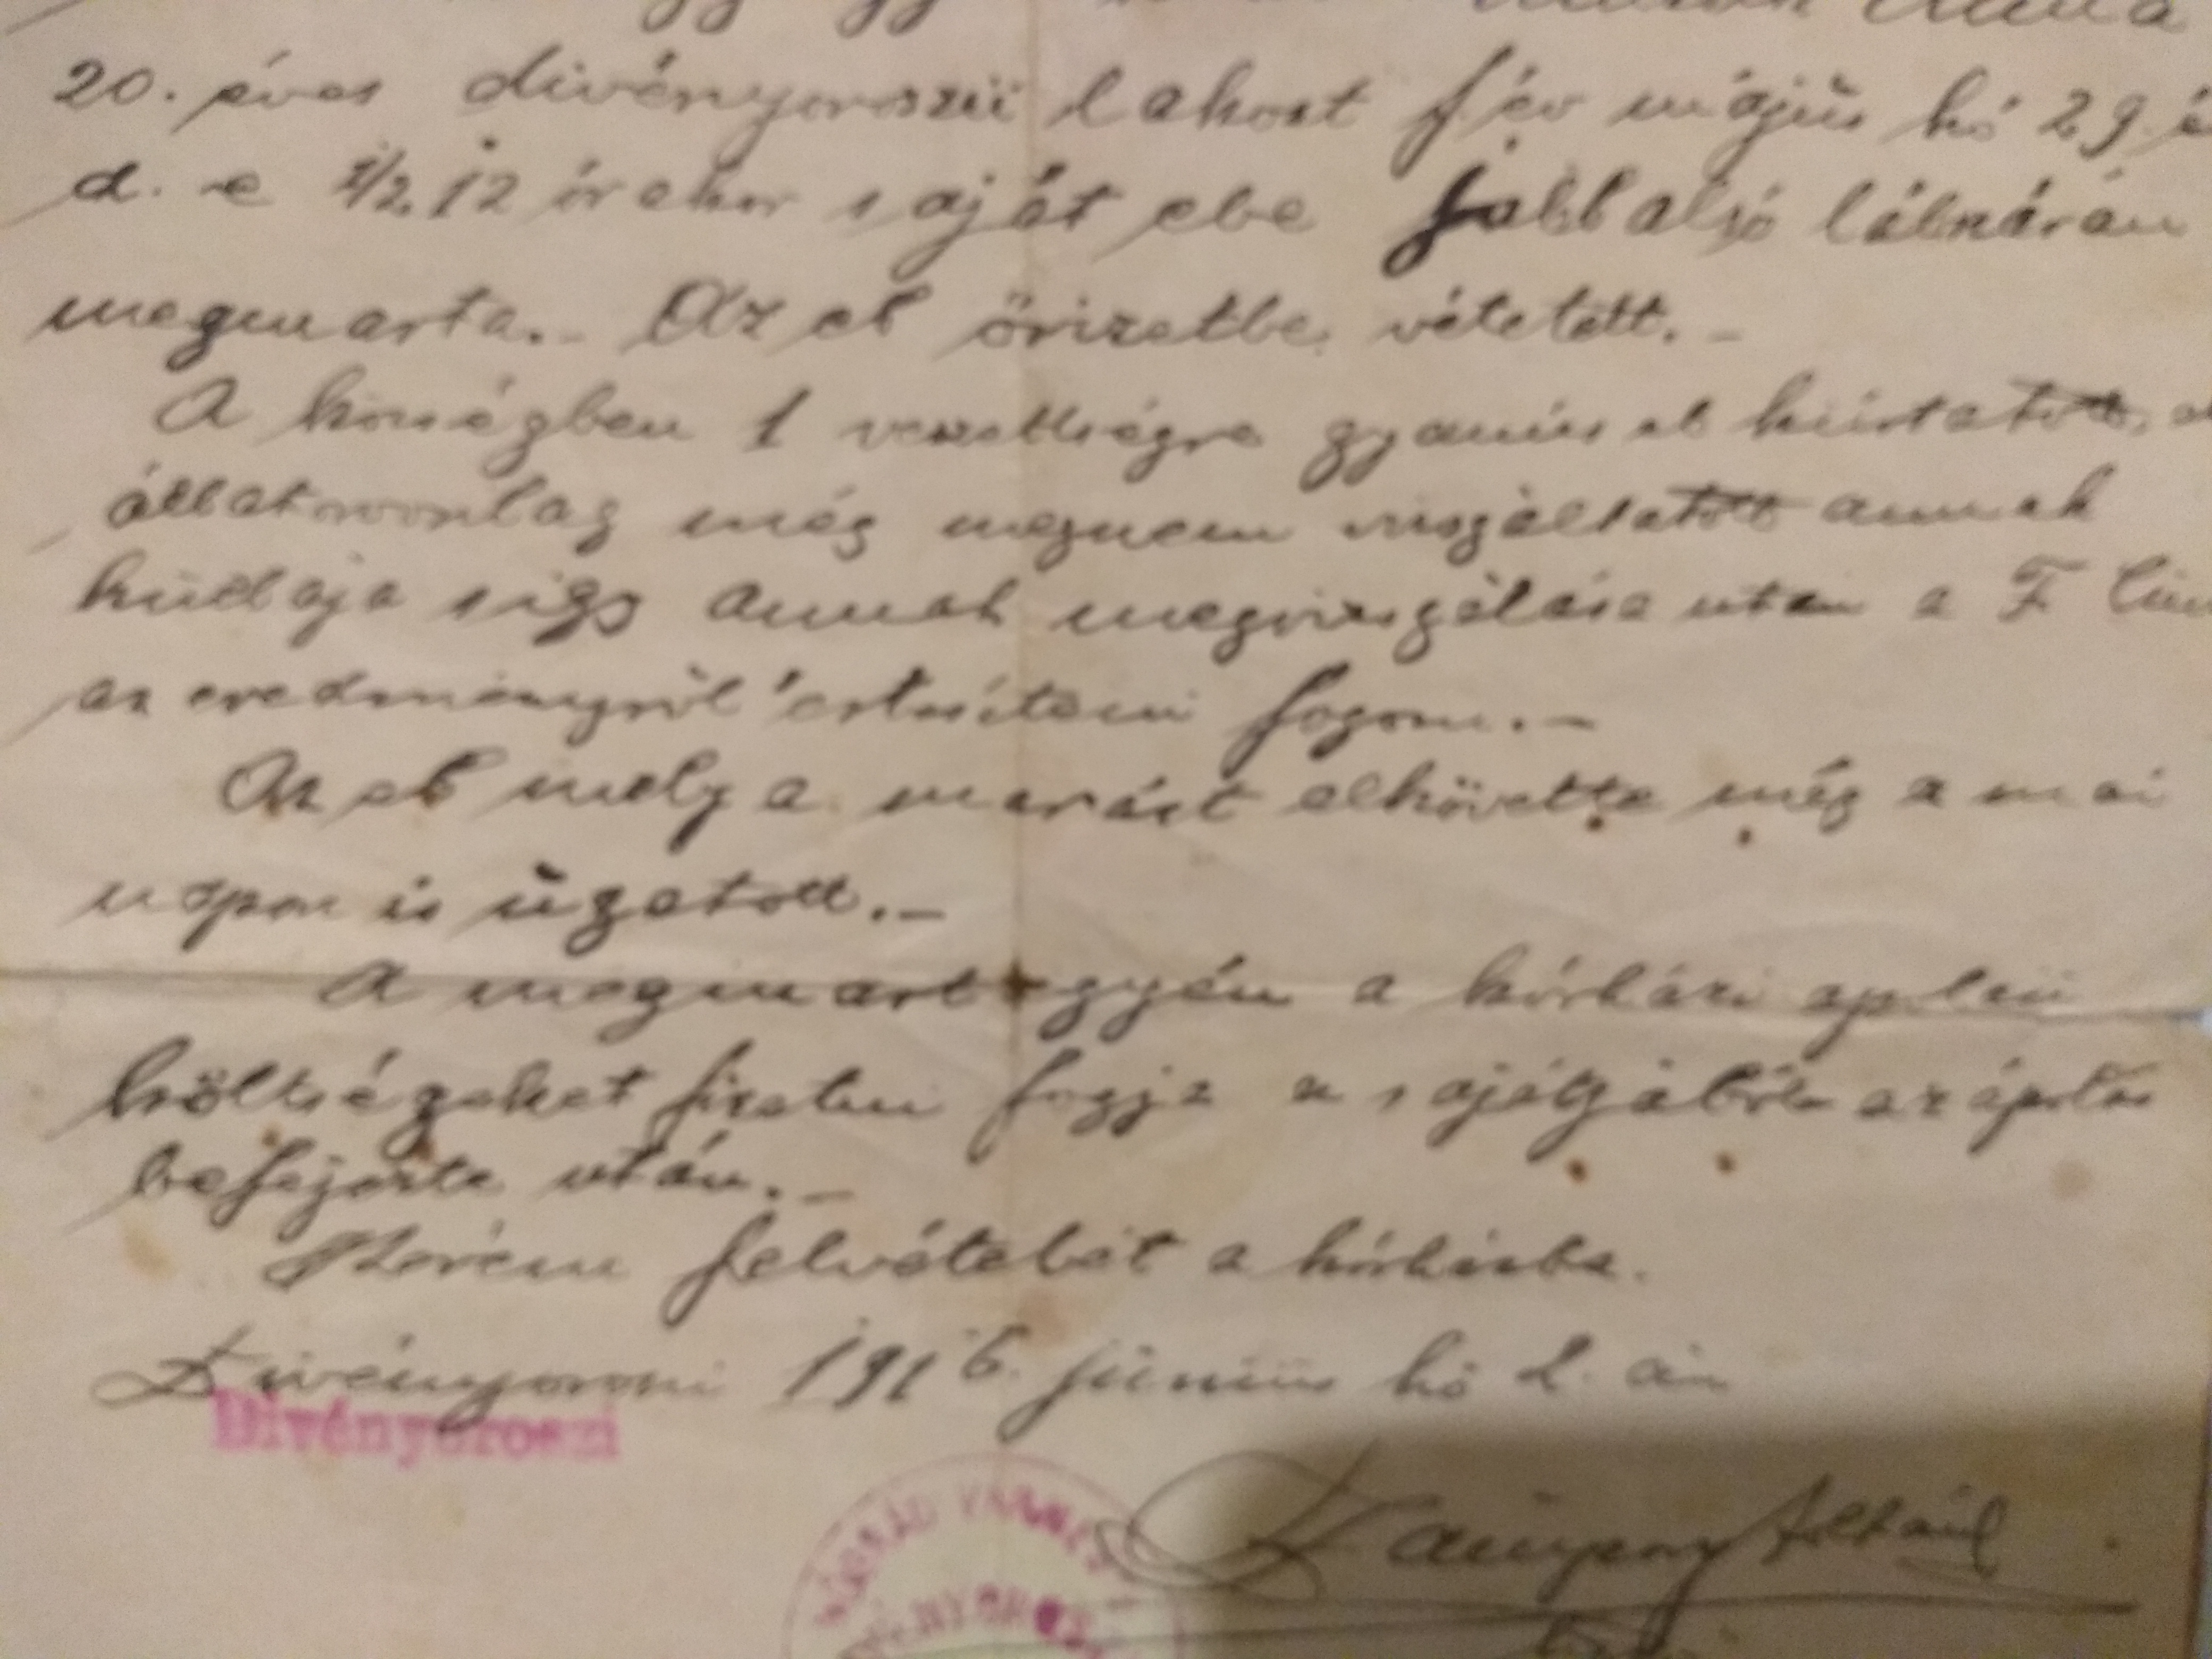 20. éves divényoroszii lakost f év május hó 29. é
d. e 1/2 12 órakor saját ebe jobb alsó lábszárán
megmarta. – Az eb őrizetbe vétetett. –
A községben 1 veszettségre gyanús eb kiirtatott,
állatorvosilag még megnem vizsgáltatott annak
hullája így annak megvizsgálása utan a T. Cim
az eredményről értesíteni fogom. –
Az eb mely a marást elkövette még a mai
napon is ugatott. –
A megmart egyén a kórházi apolasi
költségeket fizetni fogja a sajátjából az ápolás
befejezte után. –
Kérem felvételét a kórházba.
Divényoroszi 1916. június hó 2. án
Divényoroszi
NÓGRÁD VÁRMEGYE